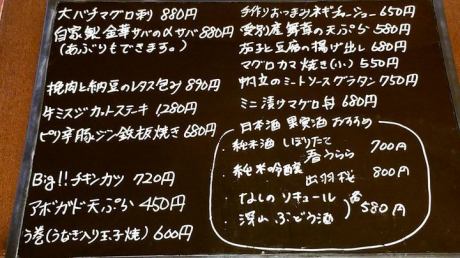 大バチマグロ刺 880円
自家製 金華サバの〆サバ 880円
(あぶりもできます。)
挽肉と納豆のレタス包み 890円
牛ミスジカットステーキ 1,280円
ピリ辛豚ジン鉄板焼き 680円
Big!! チキンカツ 720円
アボガド天ぷら 450円
う巻(うなぎ入り玉子焼) 600円
手作りおつまみネギチャーシュー 650円
愛別産 舞茸の天ぷら 580円
茄子と豆腐の揚げ出し 680円
マグロカマ焼き(小) 550円
帆立のミートソースグラタン 750円
ミニ漬けマグロ丼 680円
日本酒 果実酒 おすすめ
・純米酒 しぼりたて
春うらら 700円
・純米吟醸
出羽桜 800円
・なしのリキュール
・深山ぶどう酒
各580円